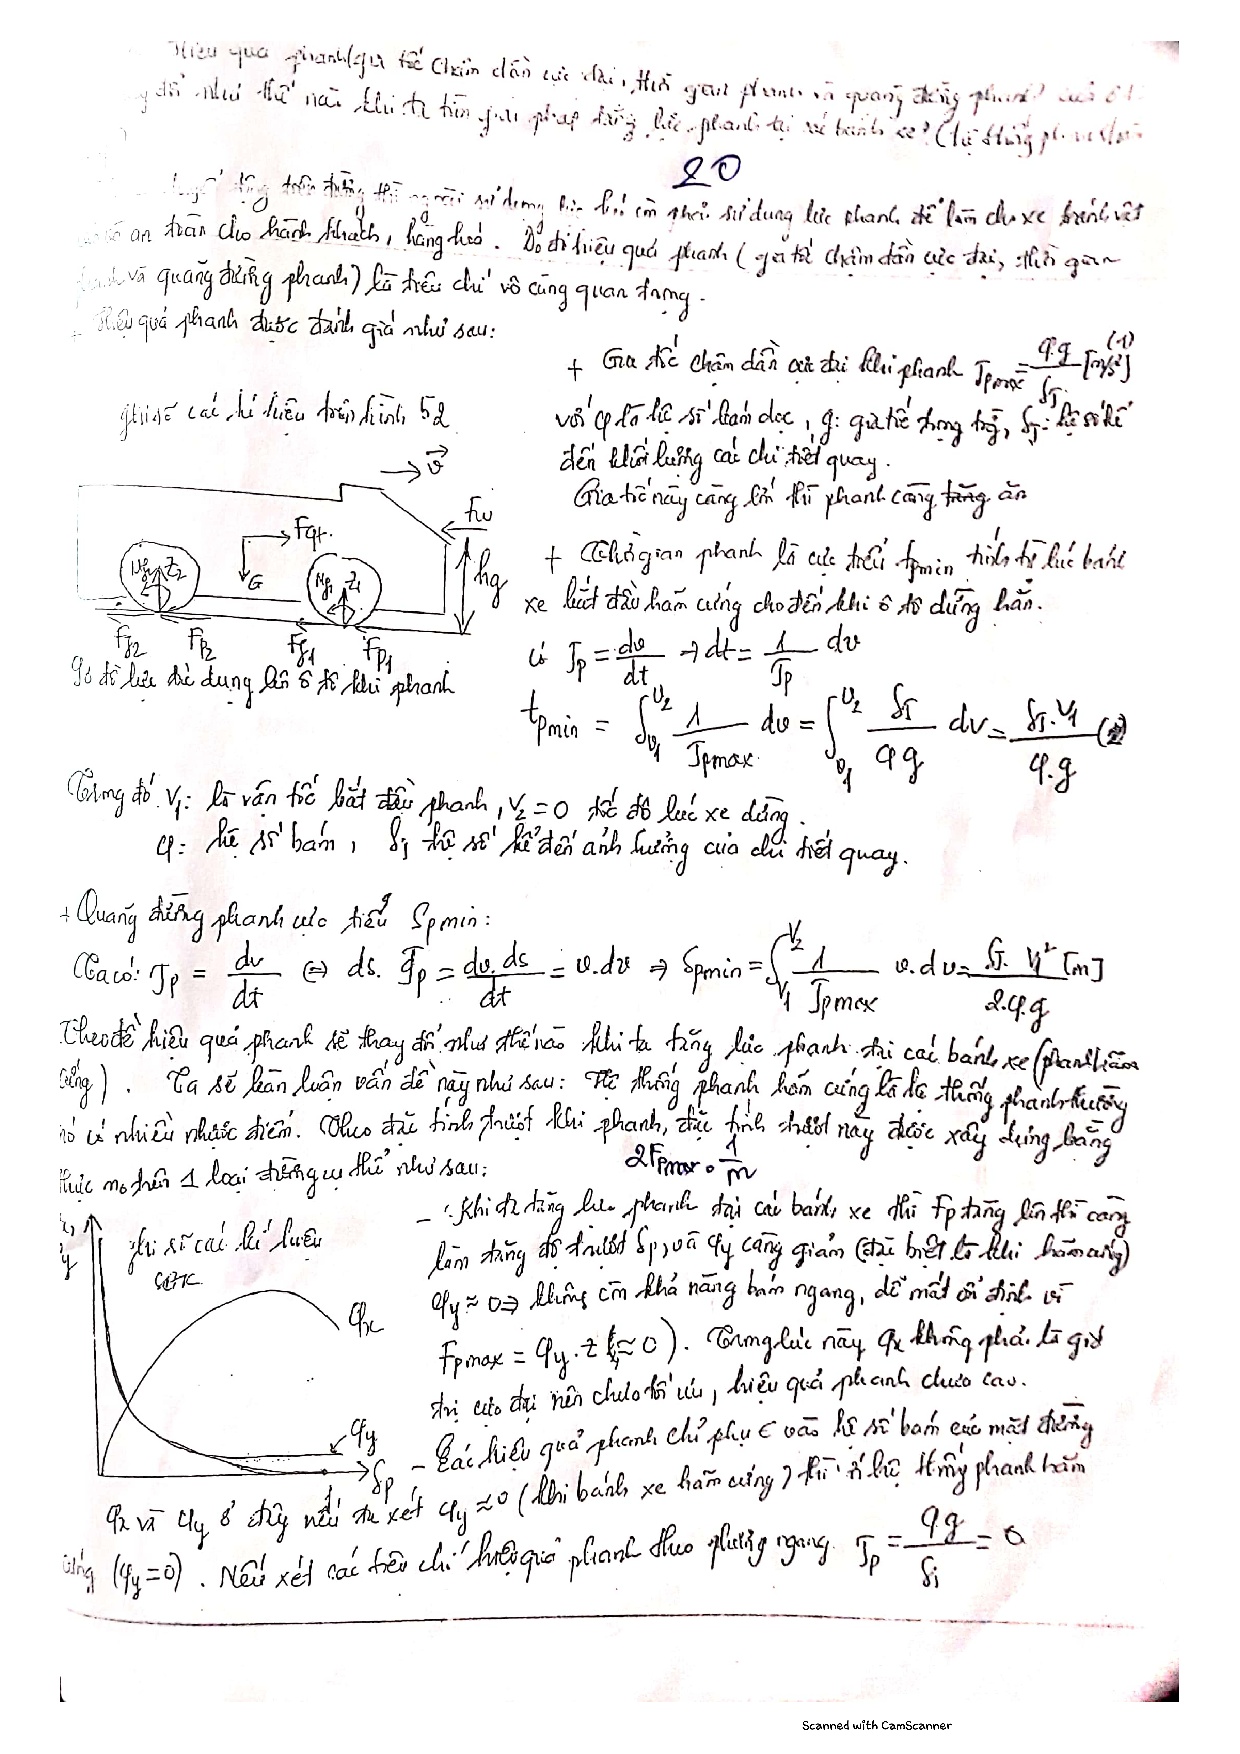 Hiệu quả phanh (gia tốc chậm dần cực đại, thời gian phanh và quãng đường phanh) của ô tô
đổi như thế nào khi ta tìm giải pháp tăng lực phanh tại các bánh xe? (hệ thống phanh hãm
20
động trên đường thì người sử dụng phải sử dụng lực phanh để làm cho xe tránh vật
an toàn cho hành khách, hàng hoá. Do đó hiệu quả phanh (gia tốc chậm dần cực đại, thời gian
phanh và quãng đường phanh) là tiêu chí vô cùng quan trọng.
+ Hiệu quả phanh được đánh giá như sau:
+ Gia tốc chậm dần cực đại khi phanh Jpmax = φ.g/δJ [m/s²] (1)
với φ là hệ số bám dọc, g: gia tốc trọng trg, δJ: hệ số kể
đến khối lượng các chi tiết quay.
Gia tốc này càng lớn thì phanh càng ăn
ghi rõ các kí hiệu trên hình 5đ
v
Fω
Fqt
hg
Mf2 Z2
G
Mf1 Z1
Ff2 Fp2 Ff1 Fp1
Sơ đồ lực tác dụng lên ô tô khi phanh
+ Thời gian phanh là cực tiểu tpmin tính từ lúc bánh
xe bắt đầu hãm cứng cho đến khi ô tô dừng hẳn.
có Jp = dv/dt → dt = 1/Jp dv
tpmin = ∫v1 v2 1/Jpmax dv = ∫v1 v2 δJ/φg dv = δJ.V1/φ.g (2)
Trong đó V1: là vận tốc bắt đầu phanh, V2 = 0 tốc độ lúc xe dừng.
φ: hệ số bám, δj hệ số kể đến ảnh hưởng của chi tiết quay.
+ Quãng đường phanh cực tiểu Spmin:
Ta có: Jp = dv/dt ⇔ ds. Jp = dv.ds/dt = v.dv ⇒ Spmin = ∫V1 V2 1/Jpmax v.dv = δJ.V1²/2.φ.g [m]
Theo đề hiệu quả phanh sẽ thay đổi như thế nào khi ta tăng lực phanh tại các bánh xe (phanh hãm
cứng). Ta sẽ bàn luận vấn đề này như sau: Hệ thống phanh hãm cứng là hệ thống phanh thường
nó có nhiều nhược điểm. Theo đặc tính trượt khi phanh, đặc tính trượt này được xây dựng bằng
2Fpmax . 1/m
thực no trên 1 loại đường cụ thể như sau:
ghi rõ các kí hiệu
φx
φy
Sp
- Khi ta tăng lực phanh tại các bánh xe thì Fp tăng lên thì càng
làm tăng độ trượt Sp, và φy càng giảm (đặc biệt là khi hãm cứng)
φy ≈ 0 ⇒ không còn khả năng bám ngang, dễ mất ổn định vì
Fpmax = φy.Z ≈ 0). Trong lúc này φx không phải là giá
trị cực đại nên chưa tối ưu, hiệu quả phanh chưa cao.
- Các hiệu quả phanh chỉ phụ ∈ vào hệ số bám các mặt đường
φx và φy ở đây nếu ta xét φy ≈ 0 (khi bánh xe hãm cứng) thì ở hệ thống phanh hãm
cứng (φy = 0). Nếu xét các tiêu chí hiệu quả phanh theo phương ngang Jp = φg/δj = 0
Scanned with CamScanner